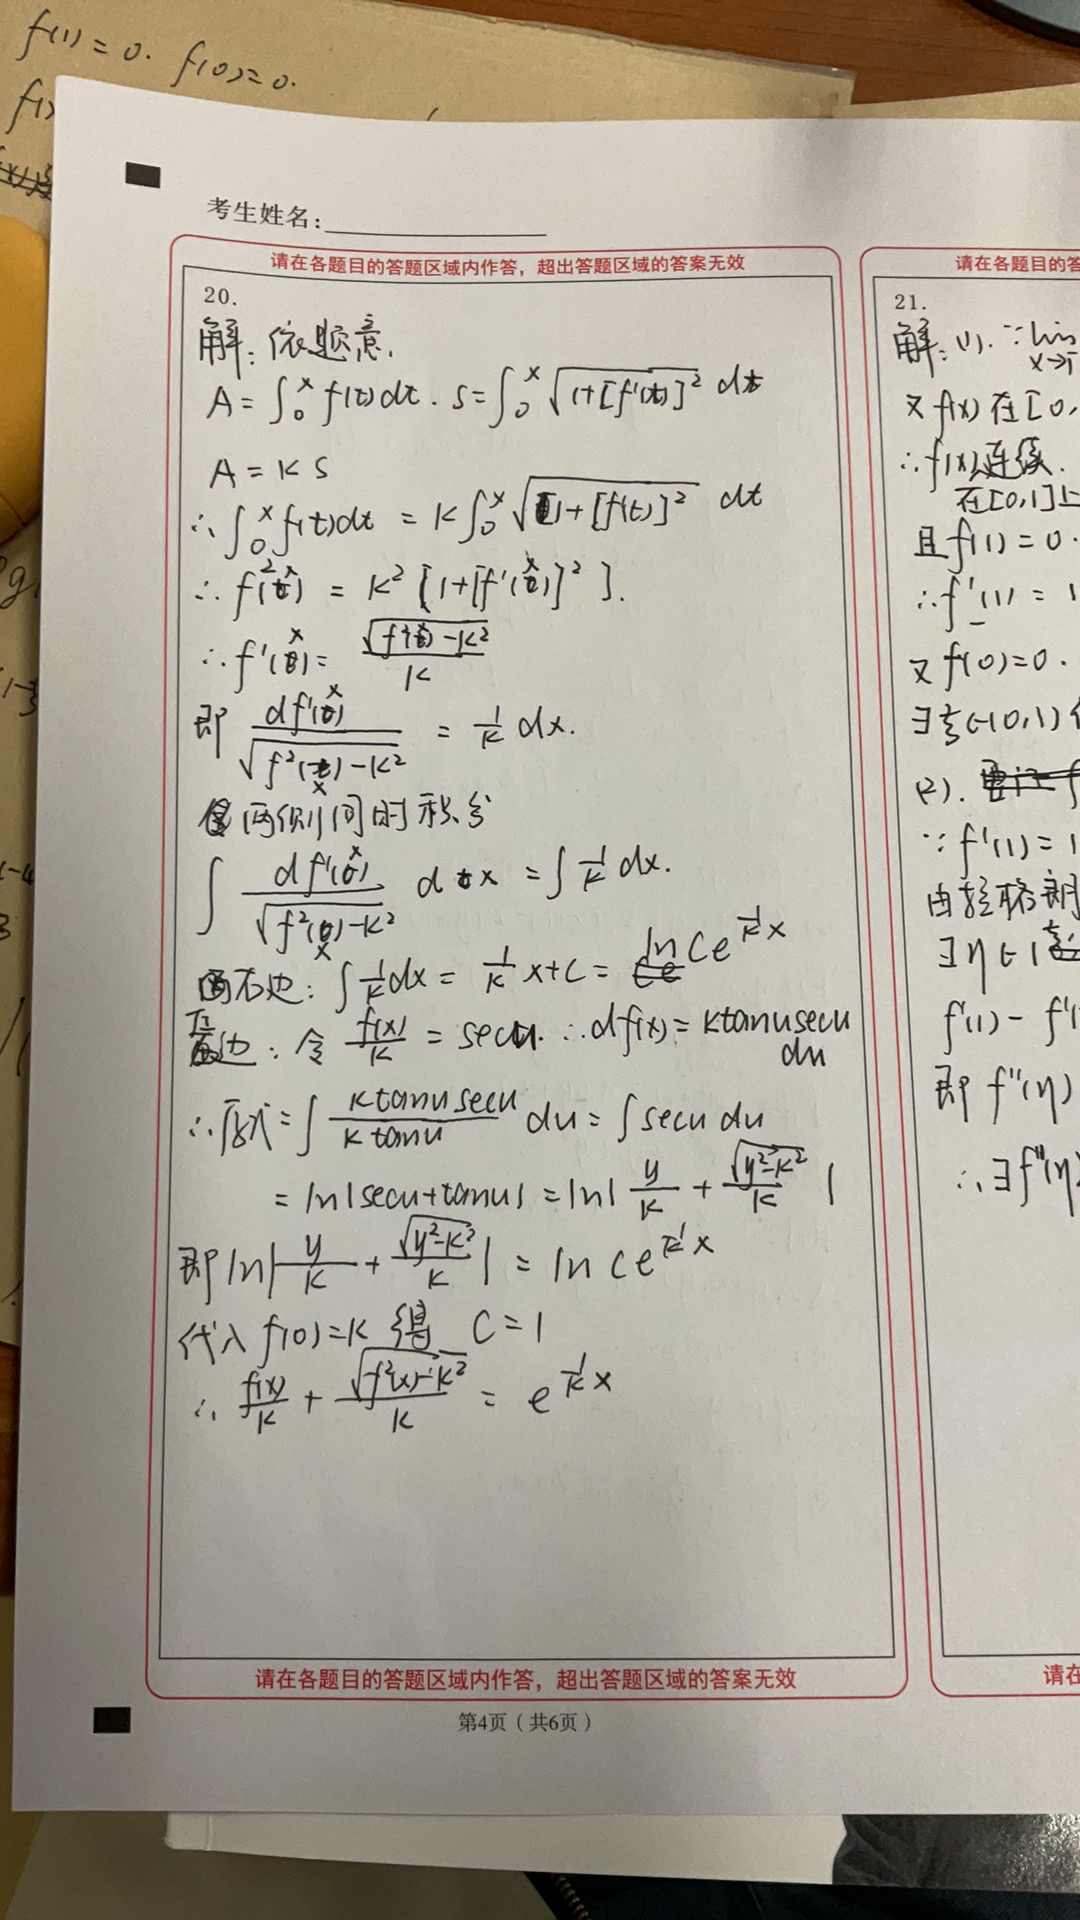 f(1)=0. f(0)=0.
f(1)
考生姓名:
请在各题目的答题区域内作答，超出答题区域的答案无效
20.
解：依题意，
A=∫₀ˣ f(t)dt. S=∫₀ˣ √(1+[f'(t)]²) dt
A=KS
∴∫₀ˣ f(t)dt = K∫₀ˣ √(1+[f'(t)]²) dt
∴ f²(x) = K²[1+[f'(x)]²].
∴ f'(x) = √(f²(x)-K²)/K
即 df'(x)/√(f²(x)-K²) = 1/K dx.
两侧同时积分
∫ df'(x)/√(f²(x)-K²) dx = ∫ 1/K dx.
右边：∫ 1/K dx = 1/K x+C = ln Ce^(1/K x)
左边：令 f(x)/K = secu. ∴df(x) = Ktanusecu du
∴原式=∫ Ktanusecu/Ktanu du = ∫secu du
= ln|secu+tanu| = ln| y/K + √(y²-K²)/K |
即 ln| y/K + √(y²-K²)/K | = ln Ce^(1/K x)
代入 f(0)=K 得 C=1
∴ f(x)/K + √(f²(x)-K²)/K = e^(1/K x)
请在各题目的答题区域内作答，超出答题区域的答案无效
第4页（共6页）
请在各题目的答
21.
解：(1). ∵lim x→1
又 f(x) 在[0,
∴f(x)连续.
在[0,1]上
且 f(1)=0.
∴f'(1) = 1
又 f(0)=0.
∃ξ∈(0,1)
(2).
∵f'(1)=1
由拉格朗
∃η∈(ξ
f'(1) - f'(
即 f''(η)
∴∃f''(η)
请在